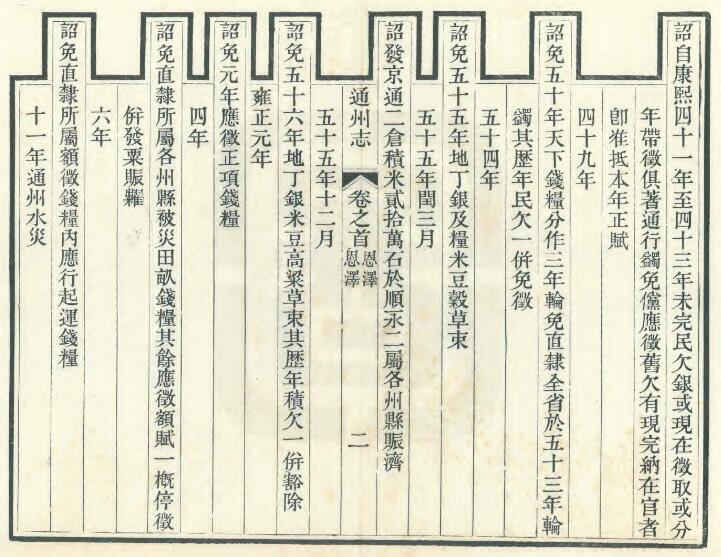 詔自康熙四十一年至四十三年未完民欠銀或現在徵取或分
年帶徵俱著通行蠲免儻應徵舊欠有現完納在官者
卽准抵本年正賦
四十九年
詔免五十年天下錢糧分作三年輪免直隸全省於五十三年輪
蠲其歷年民欠一併免徵
五十四年
詔免五十五年地丁銀及糧米豆穀草束
五十五年閏三月
詔發京通二倉積米貳拾萬石於順永二屬各州縣賑濟
通州志 卷之首 恩澤 恩澤 二
五十五年十二月
詔免五十六年地丁銀米豆高粱草束其歷年積欠一併豁除
雍正元年
詔免元年應徵正項錢糧
四年
詔免直隸所屬各州縣被災田畝錢糧其餘應徵額賦一槪停徵
倂發粟賑糶
六年
詔免直隸所屬額徵錢糧內應行起運錢糧
十一年通州水災